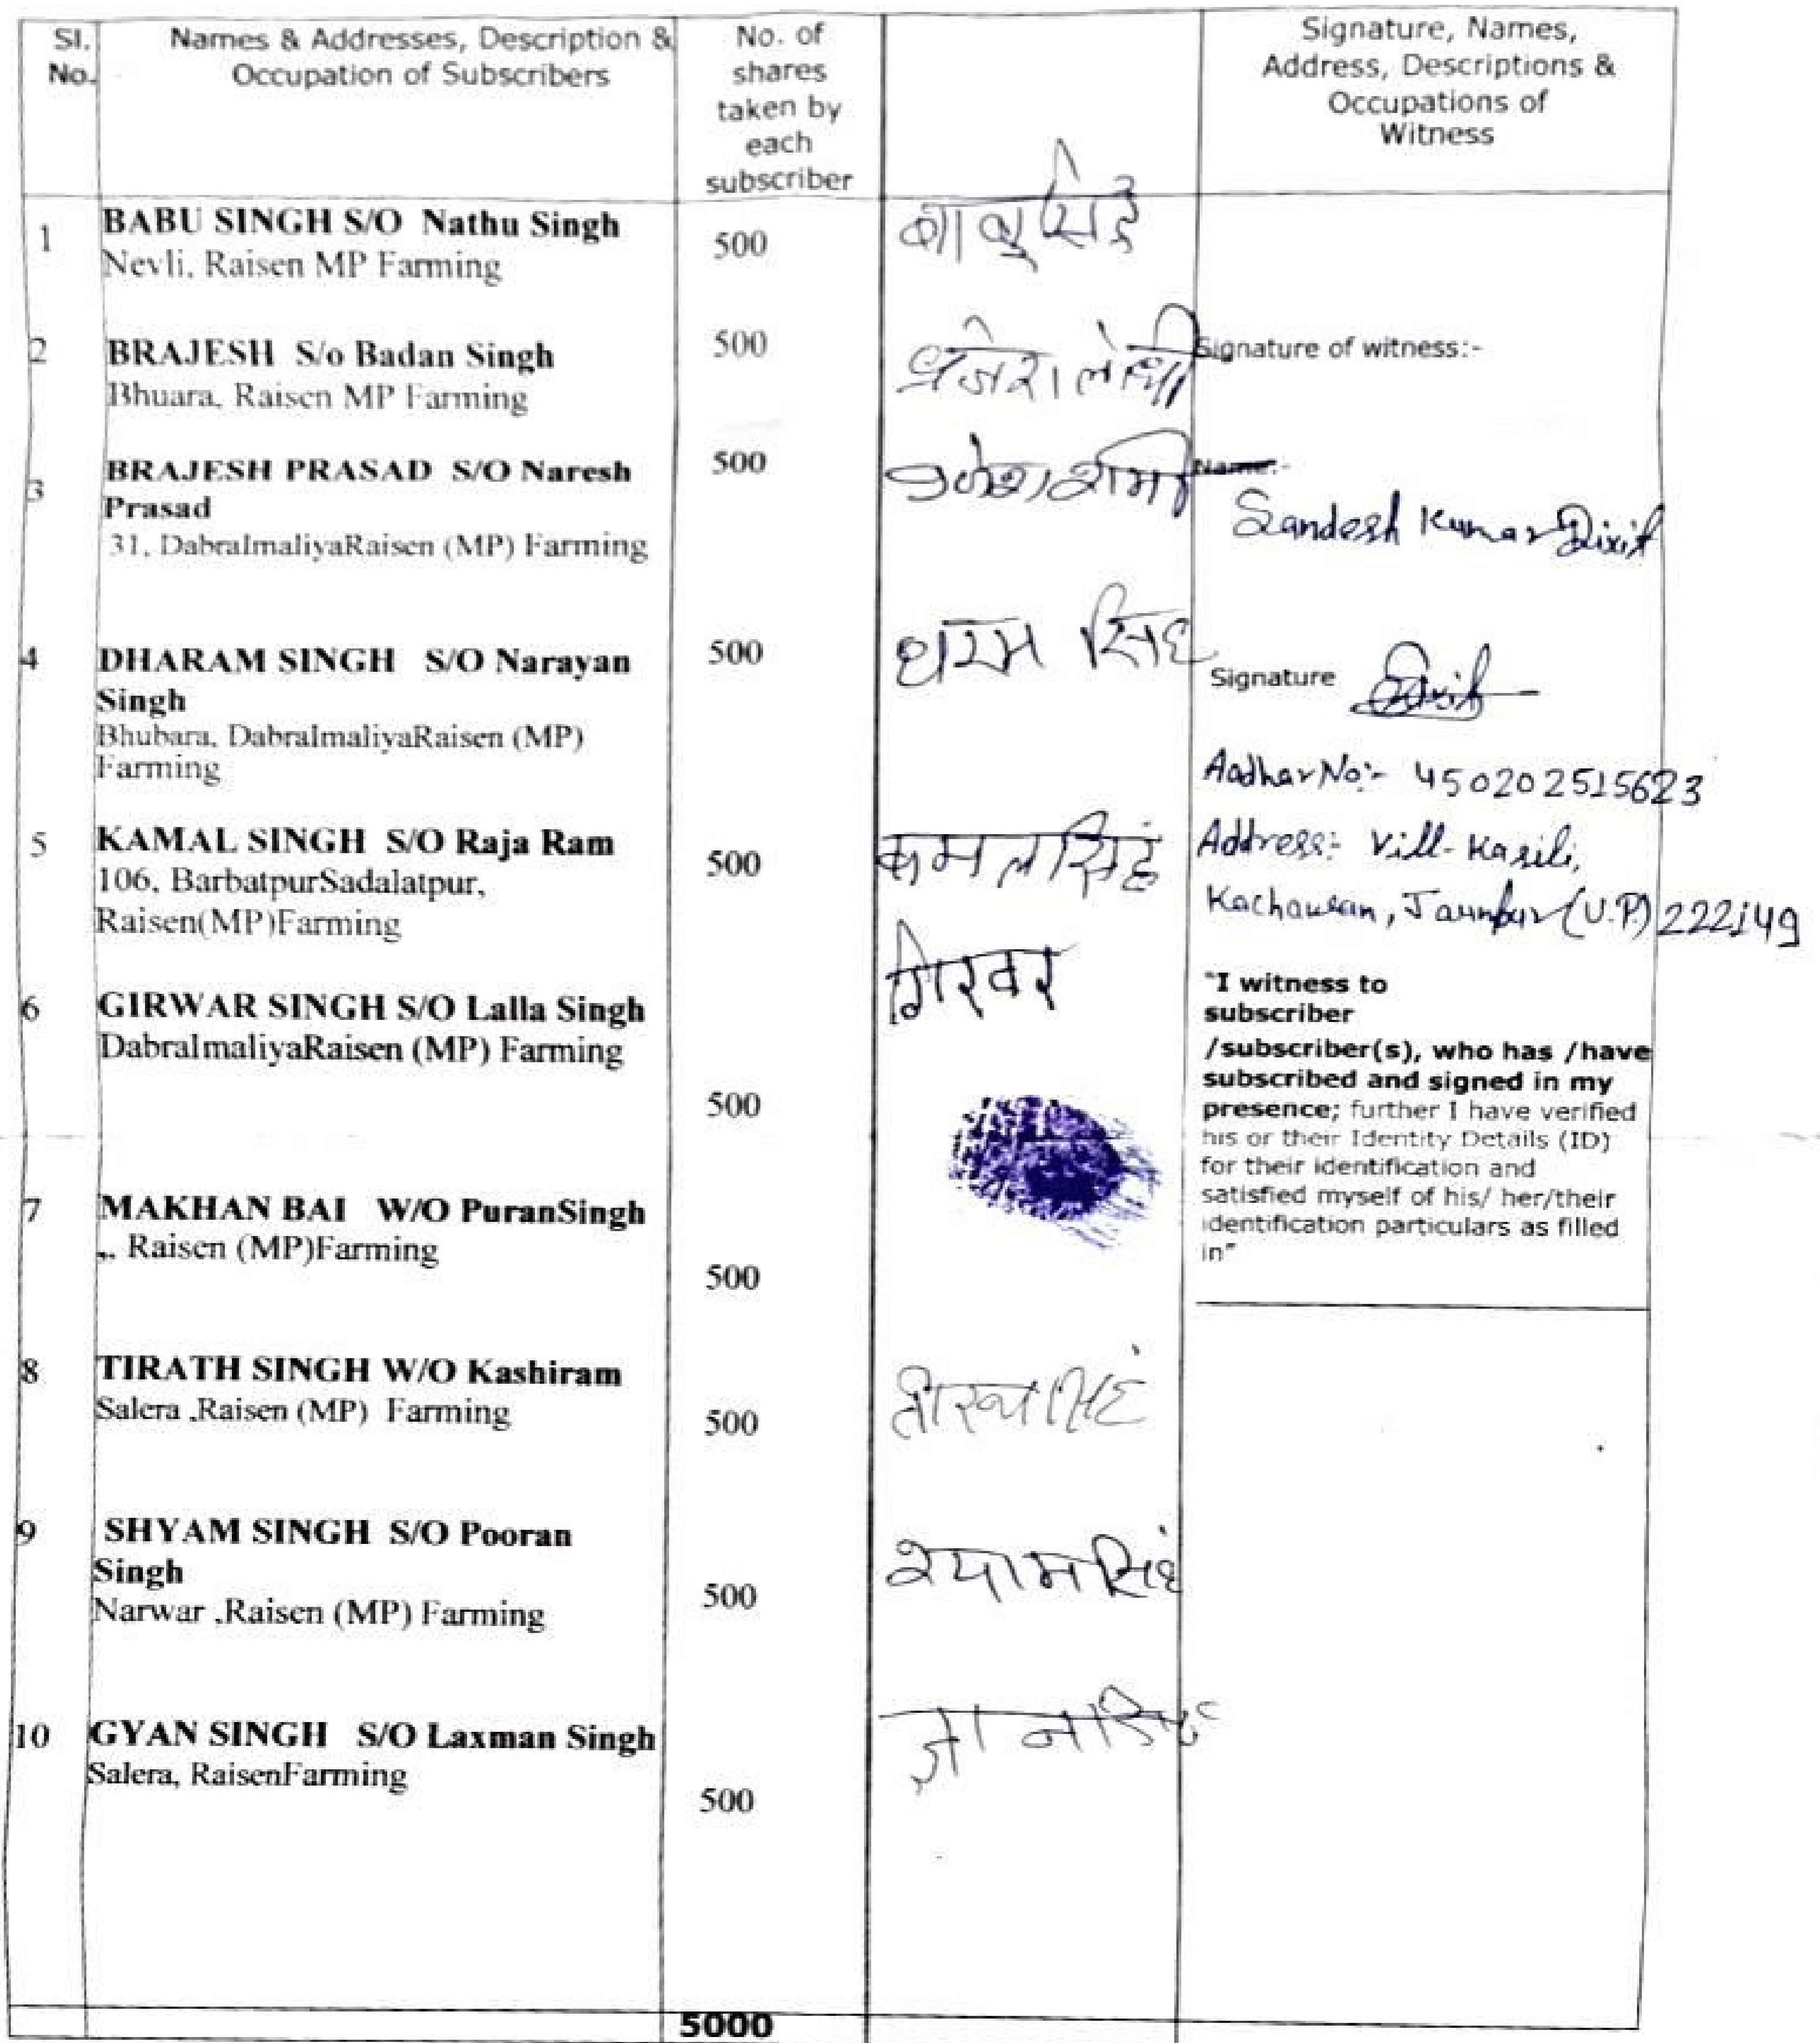 Sl. No.
Names & Addresses, Description &
Occupation of Subscribers
No. of
shares
taken by
each
subscriber
Signature, Names,
Address, Descriptions &
Occupations of
Witness
1
BABU SINGH S/O Nathu Singh
Nevli, Raisen MP Farming
500
बाबुसिंह
2
BRAJESH S/o Badan Singh
Bhuara, Raisen MP Farming
500
Signature of witness:-
3
BRAJESH PRASAD S/O Naresh
Prasad
31, DabralmaliyaRaisen (MP) Farming
500
Name:-
Sandesh Kumar Dixit
4
DHARAM SINGH S/O Narayan
Singh
Bhubara, DabralmaliyaRaisen (MP)
Farming
500
धरम सिह
Signature
Aadhar No:- 450202515623
5
KAMAL SINGH S/O Raja Ram
106, BarbatpurSadalatpur,
Raisen(MP)Farming
500
कमलसिंह
Address:- Vill- Kasili,
Kachawan, Jaunpur (U.P) 222149
6
GIRWAR SINGH S/O Lalla Singh
DabralmaliyaRaisen (MP) Farming
500
गिरवर
"I witness to
subscriber
/subscriber(s), who has /have
subscribed and signed in my
presence; further I have verified
his or their Identity Details (ID)
for their identification and
satisfied myself of his/ her/their
identification particulars as filled
in"
7
MAKHAN BAI W/O PuranSingh
,, Raisen (MP)Farming
500
8
TIRATH SINGH W/O Kashiram
Salera ,Raisen (MP) Farming
500
तीरथसिंह
9
SHYAM SINGH S/O Pooran
Singh
Narwar ,Raisen (MP) Farming
500
श्यामसिंह
10
GYAN SINGH S/O Laxman Singh
Salera, RaisenFarming
500
5000